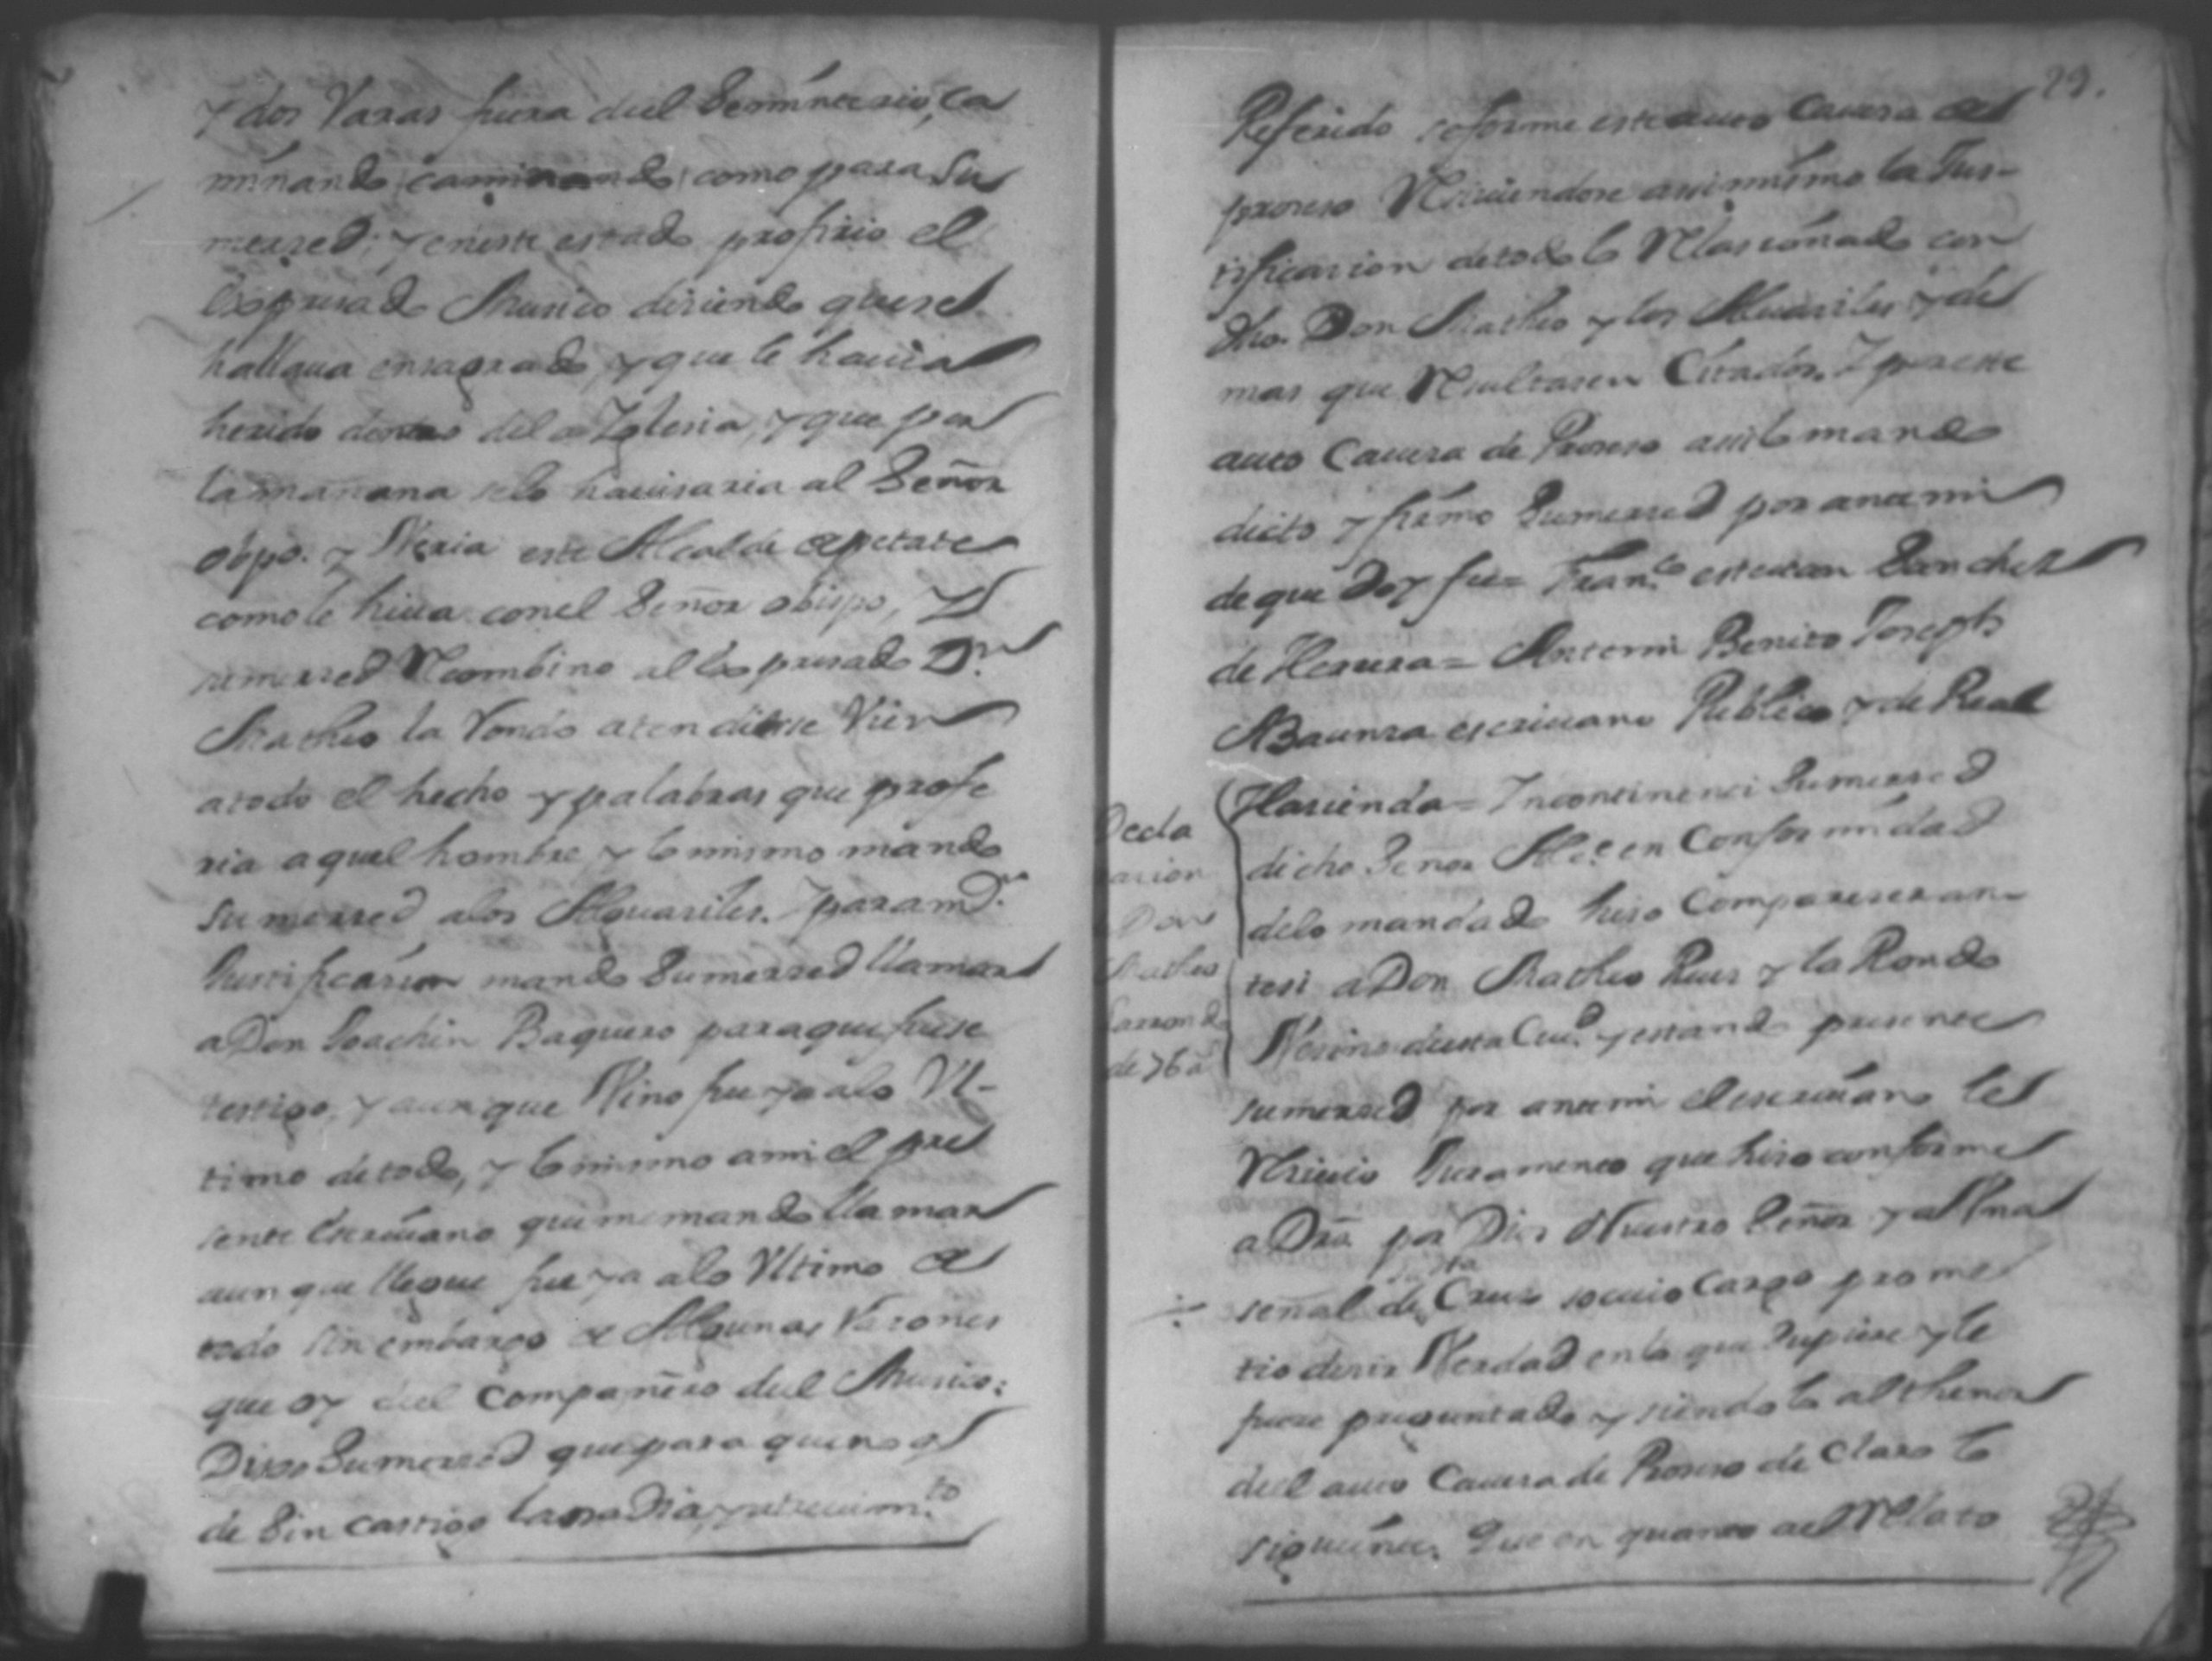 y dos Varas fuera del Seminario, ca
minando caminando como para Su
merzed; y eneste estado profirio el
Expresado Musico diciendo que se
hallaua ensagrado, y que le hauia
herido dentro dela Yglesia, y que por
la mañana selo hauisaria al Señor
obpo. y Veria este Alcalde de petate
como le hiua conel Señor obispo, y
sumerzed Recombino al Expresado Dn.
Matheo la Rondo atendiese Vien
atodo el hecho y palabras que profe
ria aquel hombre y lo mismo mando
Su merzed alos Alguaciles. Y para mr.
Justificacion mando Sumerzed llamar
a Don Joachin Baquero paraque fuese
testigo, y aunque Vino fue ya alo Vl-
timo detodo, y lo mismo ami el pre
sente Escriuano queme mando llamar
aunque llegue fue ya alo Vltimo de
todo Sin embargo de Algunas Razones
que oy del Compañero del Musico:
Dixo Sumerzed que para que no q
de Sin castigo la osadia, y atreuimto.
29.
Referido seforme este auto Cauesa de
proceso Reciuiendose assimismo la Jus-
tificacion detodo lo Relacionado con
dho. Don Matheo y los Alguaciles y de
mas que Resultasen Citados. Y por este
auto Cauesa de Proceso assi lo mando
dicto y firmo Sumerzed por ante mi
de que Doy fee= Franco. esteuan Sanchez
de Herrera= Antemi Benito Joseph
Abaunza escriuano Publico y de Real
Hacienda= Yncontinenti Sumerzed
dicho Señor Alce. en Conformidad
delo mandado hiso Comparecer an-
tesi a Don Matheo Ruis y la Rondo
Vecino desta Ciud. y estando presente
sumerzed por antemi el escriuano le
Reciuio Juramento que hiso conforme
a Dro. por Dios Nuestro Señor y a Vna
señal de sta Cruz socuio Cargo prome
tio decir Verdad enlo que Supiere y le
fuere preguntado y siendolo al thenor
del auto Cauesa de Proceso declaro lo
siguiente. Que en quanto al Relato
Decla
racion
Don
Matheo
Larrondo
de 76 a